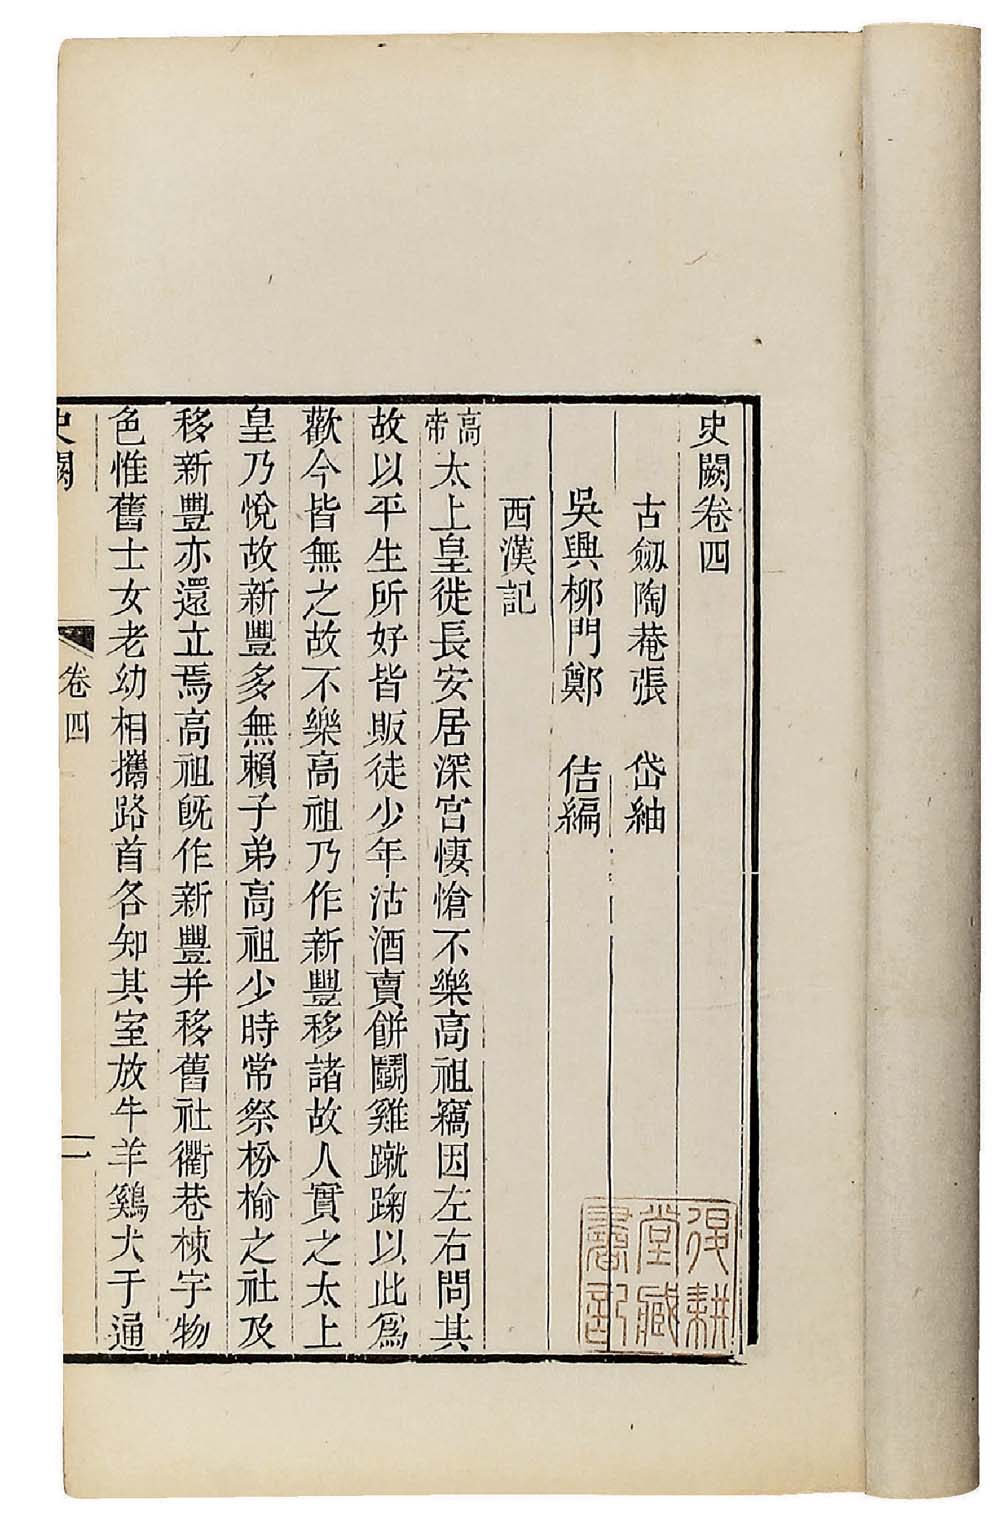 史闕卷四
古劔陶菴張　岱紬
吳興柳門鄭　佶編
西漢記
高帝太上皇徙長安居深宮悽愴不樂高祖竊因左右問其
故以平生所好皆販徒少年沽酒賣餅鬭雞蹴踘以此爲
歡今皆無之故不樂高祖乃作新豐移諸故人實之太上
皇乃悅故新豐多無賴子弟高祖少時常祭枌榆之社及
移新豐亦還立焉高祖旣作新豐并移舊社衢巷棟宇物
色惟舊士女老幼相攜路首各知其室放牛羊鷄犬于通
史闕
卷四
一
復耕
堂藏
書記